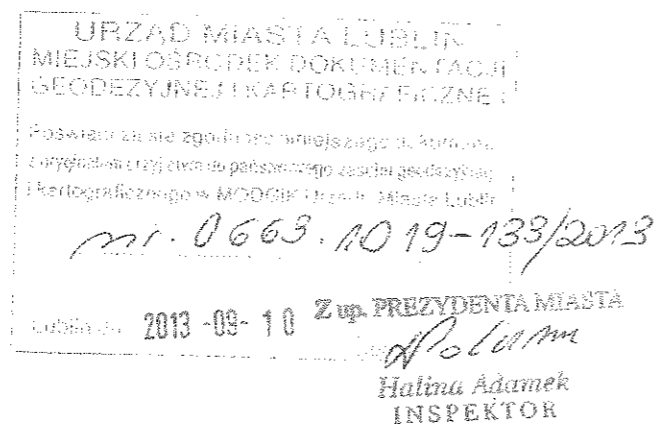 URZĄD MIASTA LUBLIN
MIEJSKI OŚRODEK DOKUMENTACJI
GEODEZYJNEJ I KARTOGRAFICZNEJ
Poświadcza się zgodność niniejszego dokumentu
z oryginałem przyjętym do państwowego zasobu geodezyjnego
i kartograficznego w MODGiK Urzędu Miasta Lublin
nr. 0663.1019-133/2013
Lublin dn. 2013 -09- 10
Z up. PREZYDENTA MIASTA
Halina Adamek
INSPEKTOR